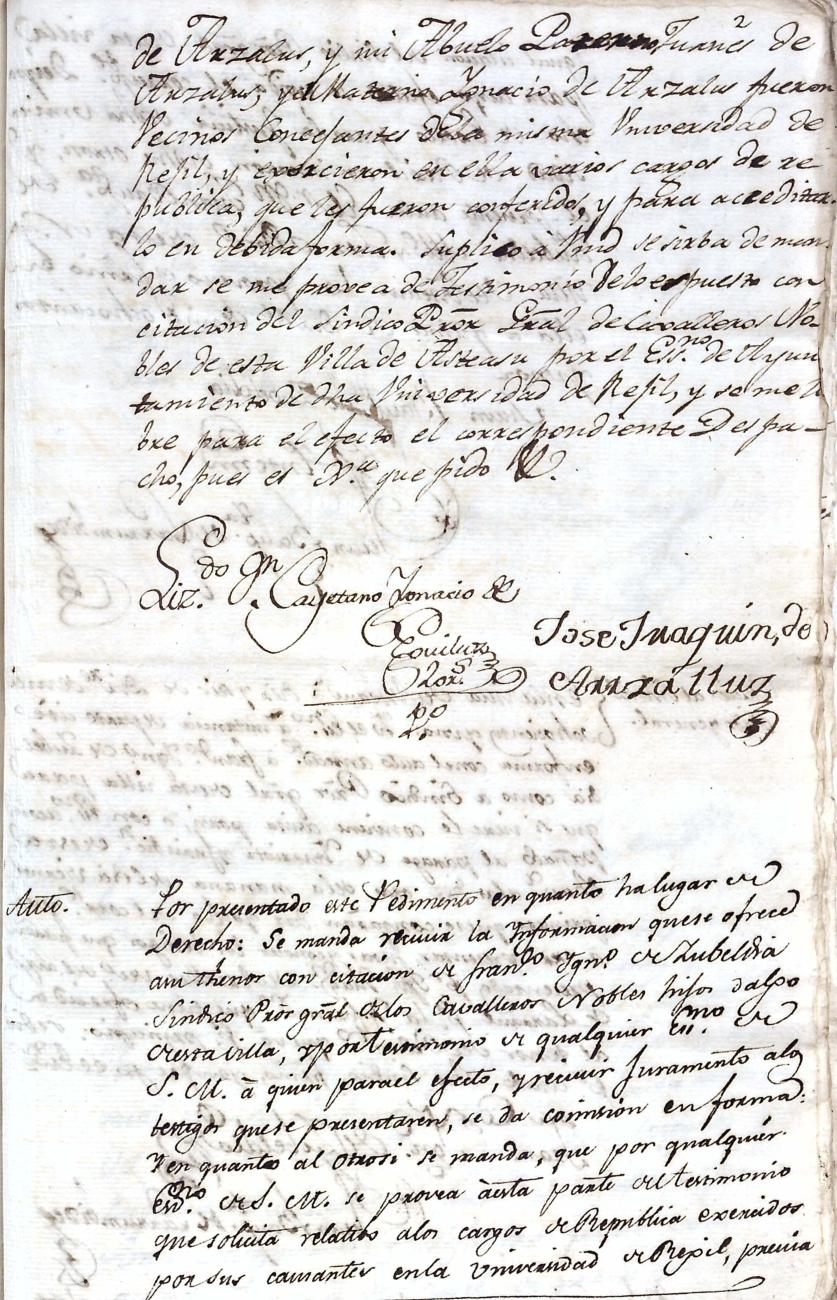 de Arzalus, y mi Abuelo Paterno Juanes de
Arzalus, y el Materno Ygnacio de Arzalus fueron
Vecinos Concejantes dela misma Vniversidad de
Resil, y exercieron en ella varios cargos de re
publica, que les fueron conferidos, y para acreditar
lo en debida forma. Suplico à Vmd se sirba deman
dar se me provea de Testimonio delo expuesto con
citacion del Sindico Pror Gral de Cavalleros No
bles de esta Villa de Asteasu por el Essno de Ayun
tamiento de dha Vniversidad de Resil, y se me li
bre para el efecto el correspondiente Despa-
cho, pues es Jª que pido V.
Lizdo Dn Cayetano Ygnacio de
Eguiluz
Jose Juaquin, de
Arrzalluz
Auto.
Por presentado este Pedimento en quanto ha lugar de
Derecho: Se manda recivir la Informacion quese ofrece
asu thenor con citacion de franco Ygno de Zubeldia
Sindico Pror gral delos Cavalleros Nobles hijos dalgo
de esta villa, y por testimonio de qualquier Essno de
S. M. à quien parael efecto, y recivir Juramento alos
testigos quese presentaren, se da comision en forma:
Y en quanto al otrosi se manda, que por qualquier
essno de S. M. se provea àesta parte del testimonio
que solicita relativo alos cargos de Republica exercidos
por sus causantes enla Vniversidad de Rexil, previa